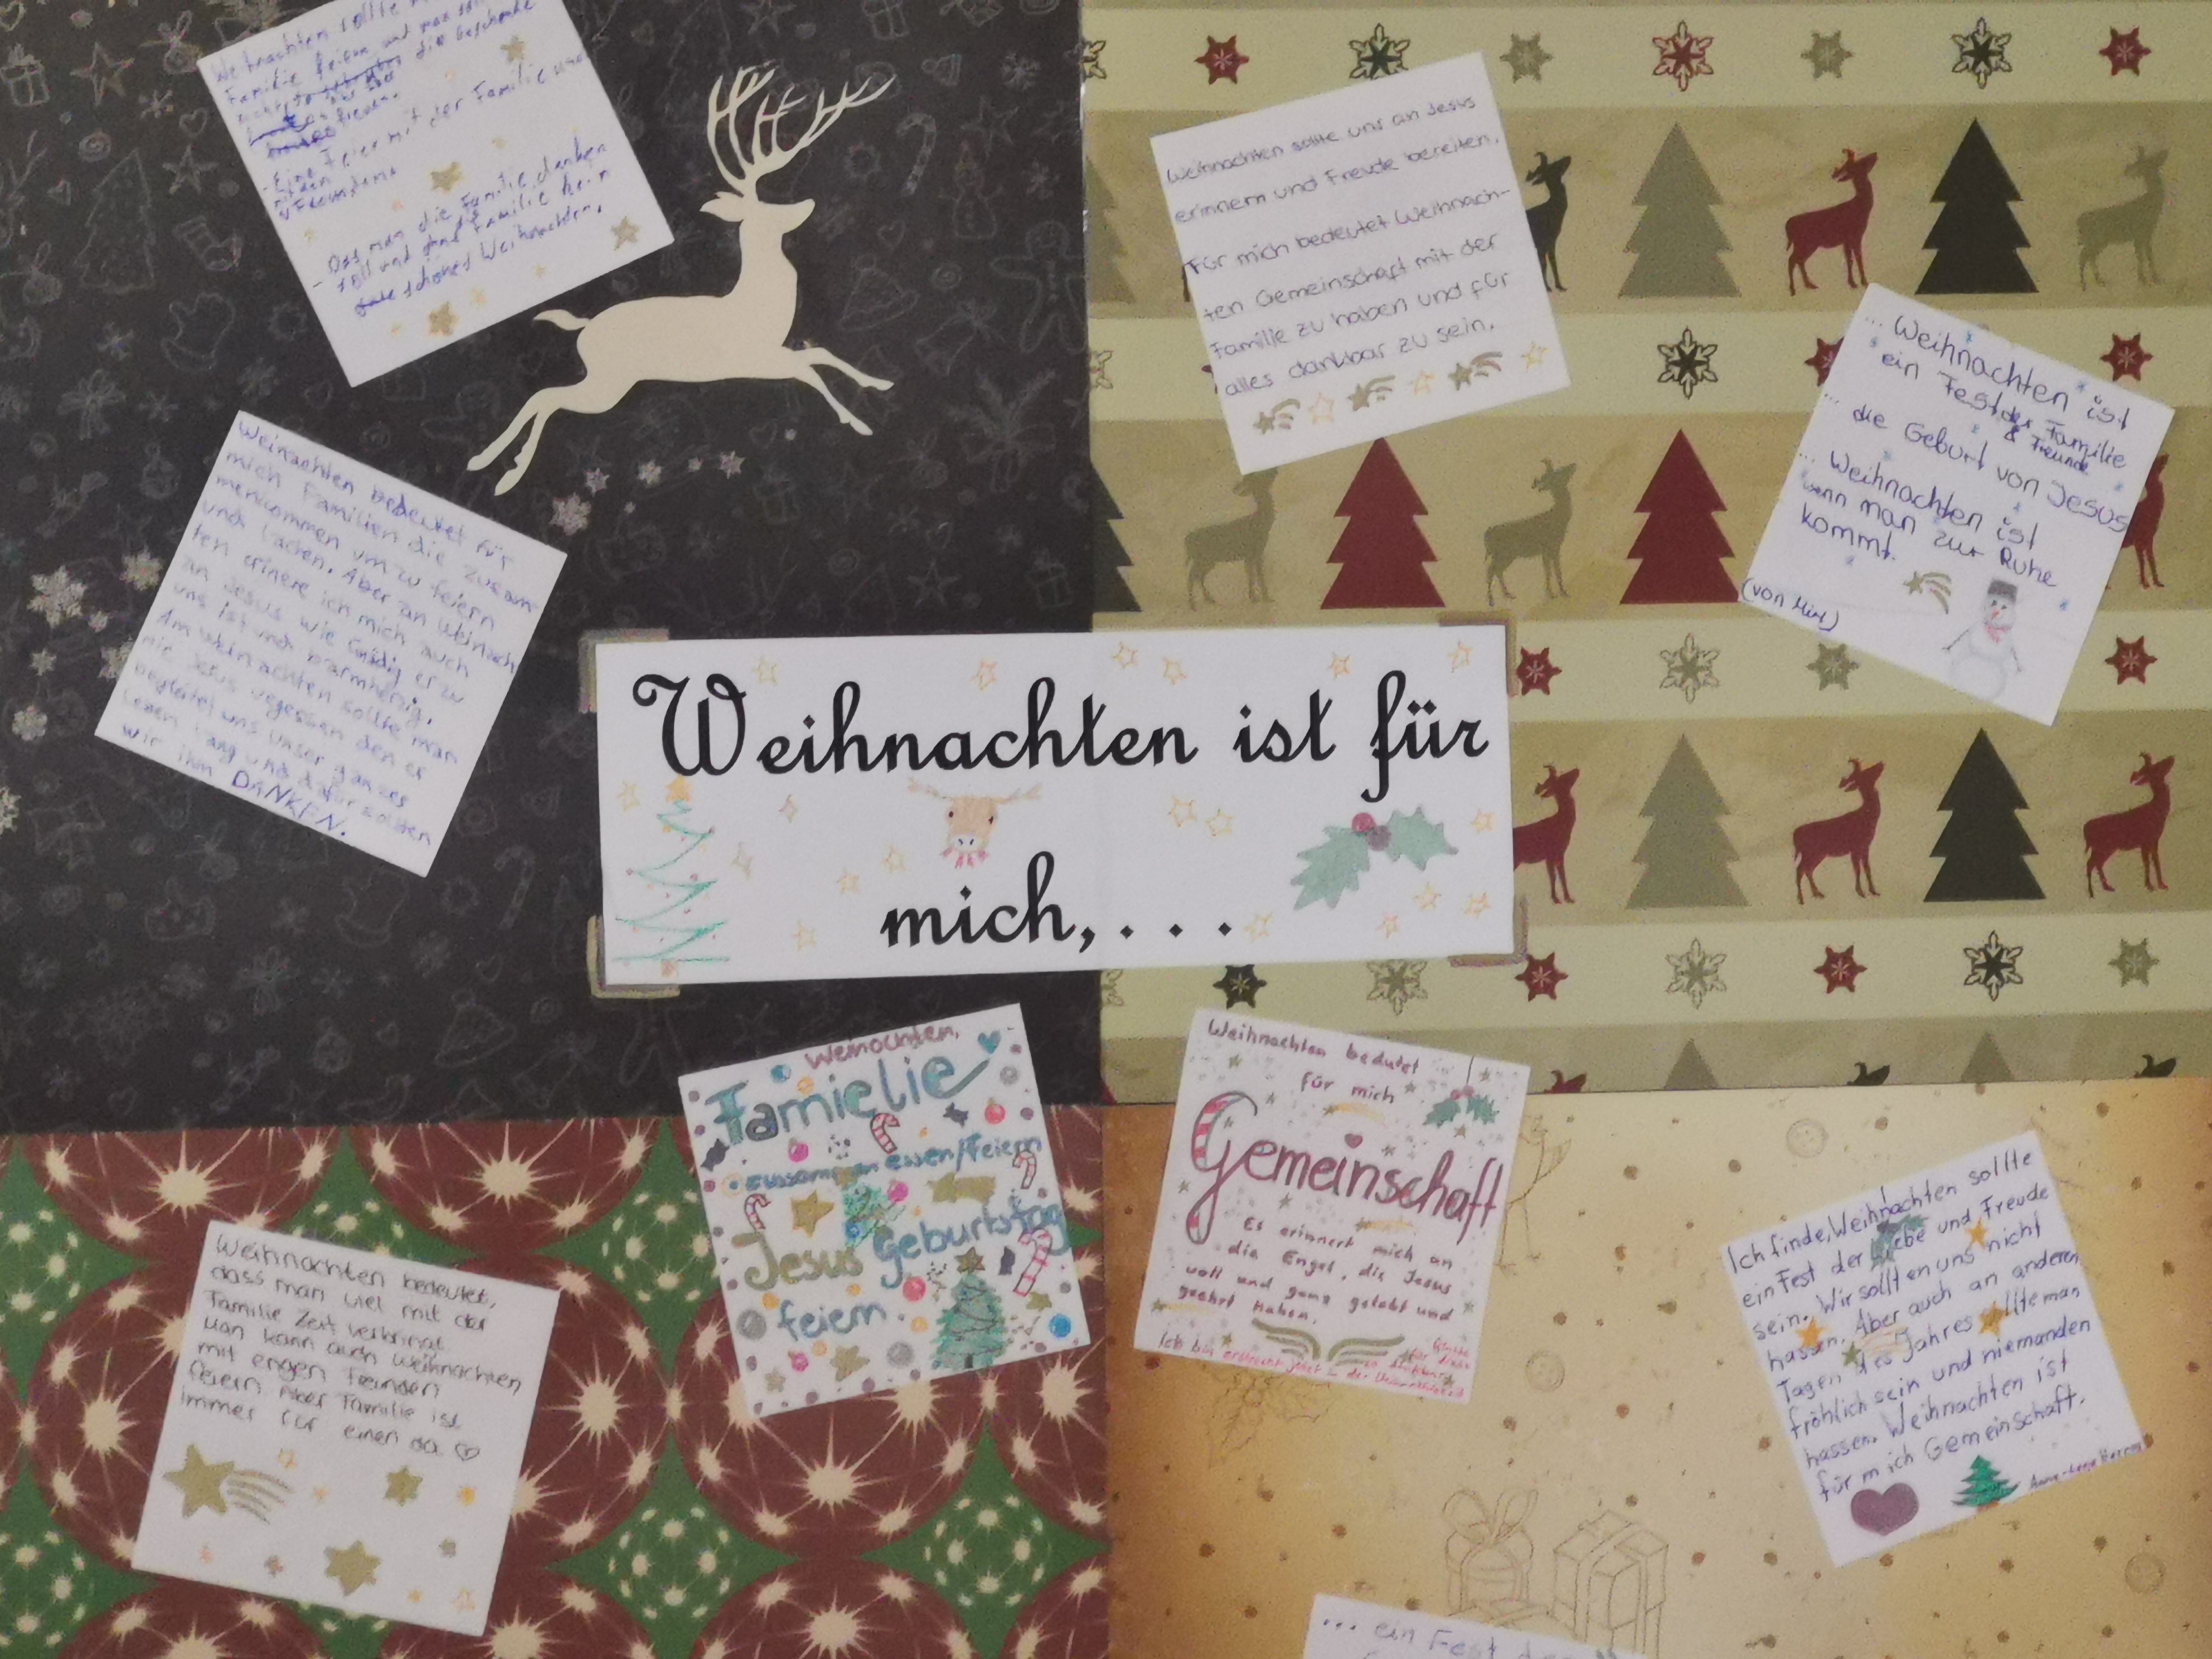 Weihnachten sollte
Familie feiern und man soll
die Geschenke
freuen.
- Eine Feier mit der Familie und
mit den
Freunden
- Das man die Familie danken
- soll und ohne die Familie kein
schönes Weihnachten.
Weihnachten sollte uns an Jesus
erinnern und Freude bereiten.
Für mich bedeutet Weihnach-
ten Gemeinschaft mit der
Familie zu haben und für
alles dankbar zu sein.
... Weihnachten ist
ein Fest der Familie
& Freunde
... die Geburt von Jesus
... Weihnachten ist
wenn man zur Ruhe
kommt.
Weinachten bedeutet für
mich Familien die zusam
menkommen um zu feiern
und lachen. Aber an Weinach
ten erinere ich mich auch
an Jesus wie Gnädig er zu
uns ist und barmherzig.
Am Weinachten sollte man
nie Jesus vegessen den er
begleitet uns unser ganzes
Leben lang und dafür sollten
wir ihm DANKEN.
Weihnachten ist für
mich,...
Weinachten,
Famielie
zusammen essen/feiern
Jesus Geburtstag
feiern.
Weihnachten bedutet
für mich
Gemeinschaft
Es erinnert mich an
die Engel, die Jesus
voll und ganz gelobt und
geehrt haben.
Ich bin
Ich finde, Weihnachten sollte
ein Fest der Liebe und Freude
sein. Wir sollten uns nicht
hassen. Aber auch an anderen
Tagen des Jahres sollte man
fröhlich sein und niemanden
hassen. Weihnachten ist
für mich Gemeinschaft.
Weihnachten bedeutet,
dass man viel mit der
Familie Zeit verbringt
Man kann auch Weihnachten
mit engen Freunden
feiern Aber Familie ist
immer für einen da ♡
... ein Fest der